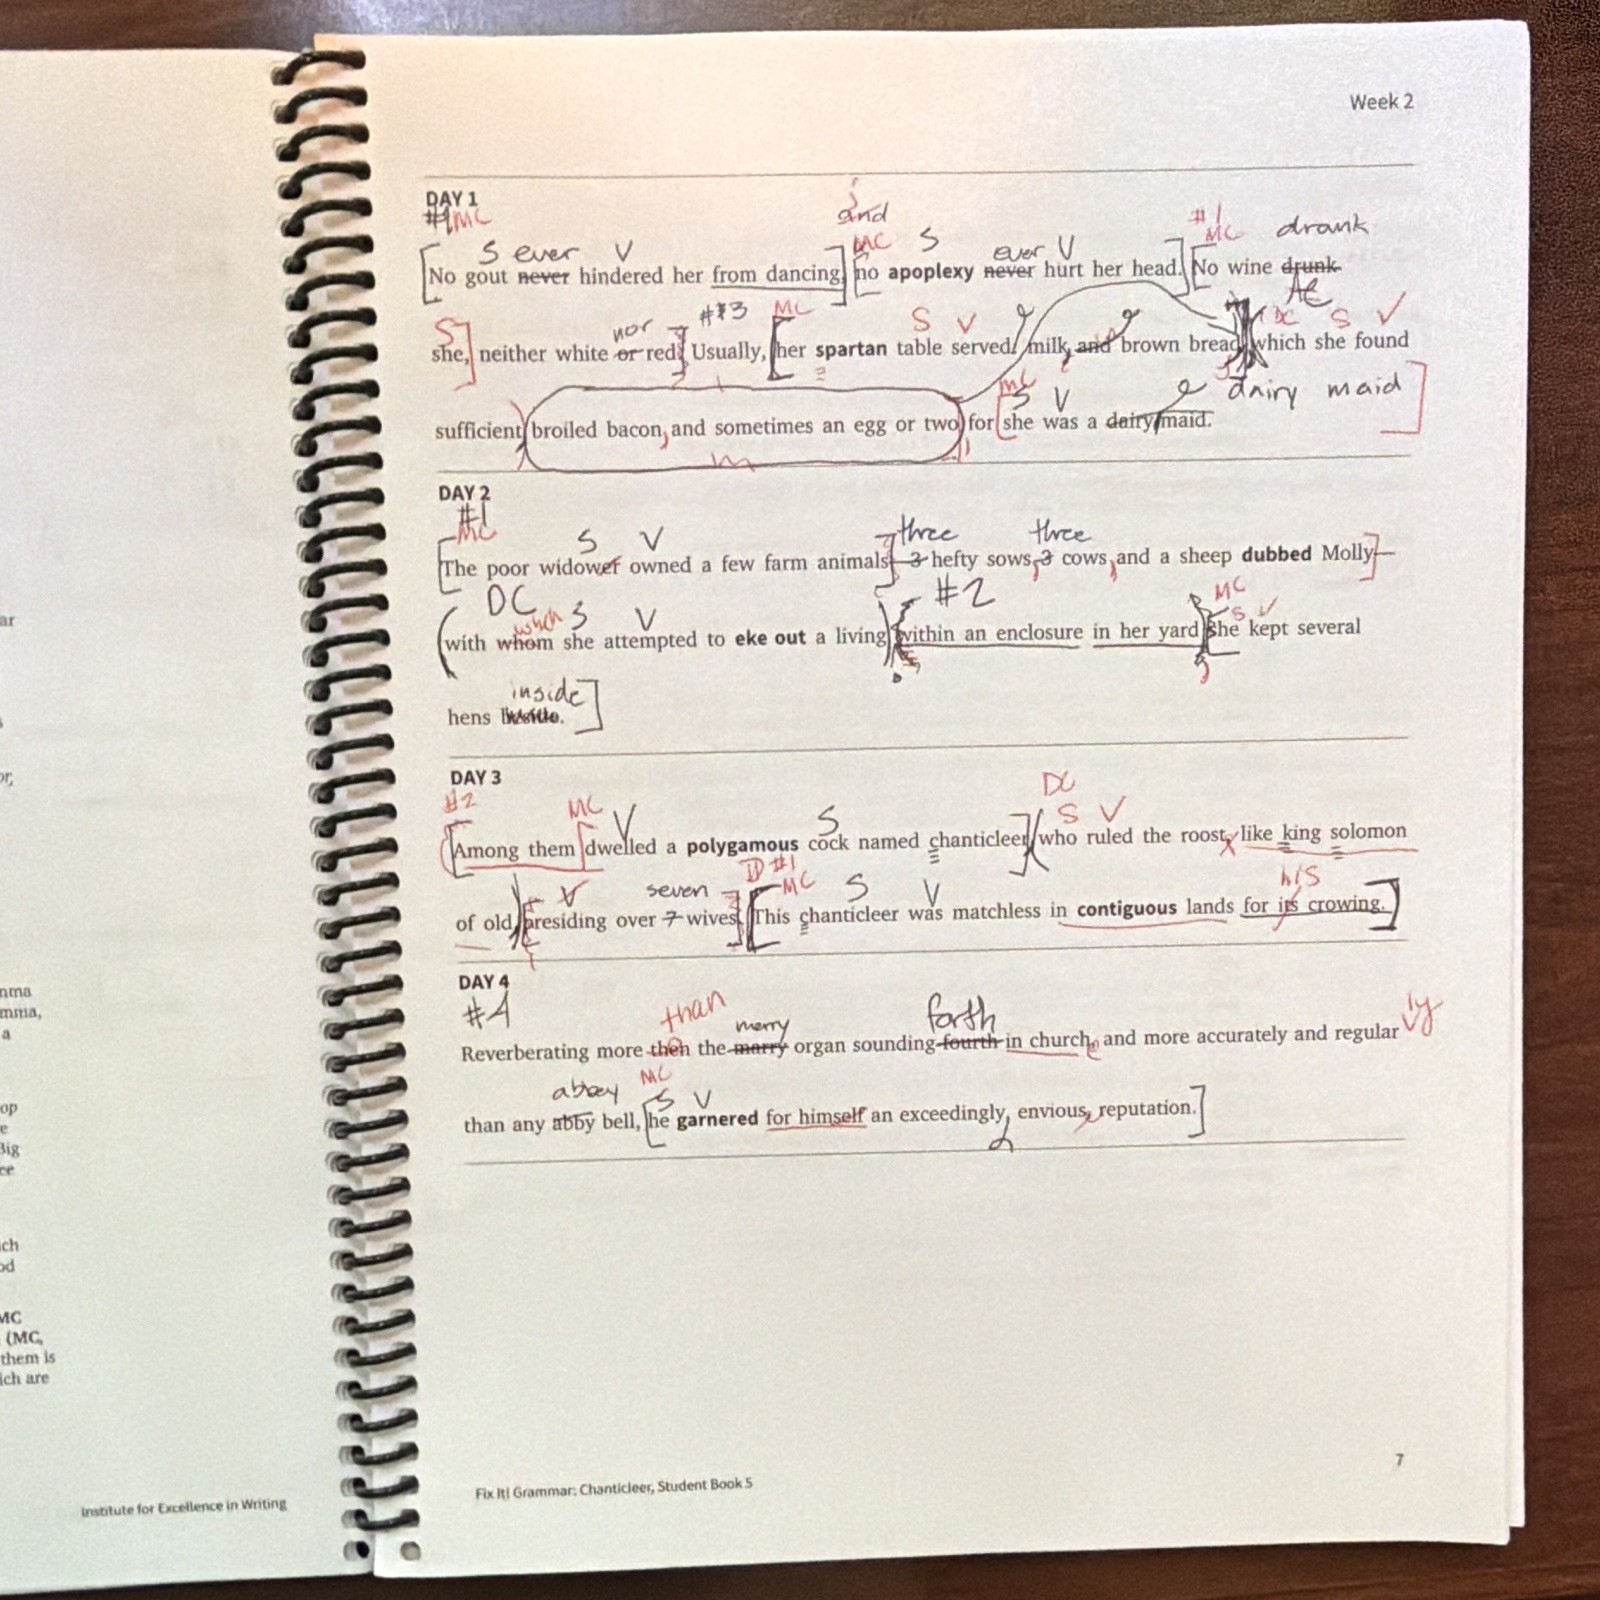 Week 2
DAY 1
#1 MC
and
MC S
#1 MC drank
S ever V
ever V
No gout never hindered her from dancing, no apoplexy never hurt her head. No wine drunk
S
nor
#3 MC
S V
DC S V
she, neither white or red. Usually, her spartan table served milk, and brown bread, which she found
MC
S V
dairy maid
sufficient broiled bacon, and sometimes an egg or two, for she was a dairy maid.
DAY 2
#1
MC
S V
three three
The poor widower owned a few farm animals 3 hefty sows, 3 cows, and a sheep dubbed Molly—
DC which S V
#2
MC
S V
with whom she attempted to eke out a living within an enclosure in her yard she kept several
inside
hens
DAY 3
#2
MC V S
DC
S V
Among them dwelled a polygamous cock named chanticleer who ruled the roost, like king solomon
V seven
#1 MC S V
his
of old, presiding over 7 wives. This chanticleer was matchless in contiguous lands for its crowing.
DAY 4
#4
than merry forth ly
Reverberating more then the marry organ sounding fourth in church, and more accurately and regular
abbey MC
S V
than any abby bell, he garnered for himself an exceedingly, envious, reputation.
7
Fix It! Grammar: Chanticleer, Student Book 5
Institute for Excellence in Writing
ar
or,
mma,
a
op
e
Big
ce
ich
od
MC
(MC,
them is
ich are